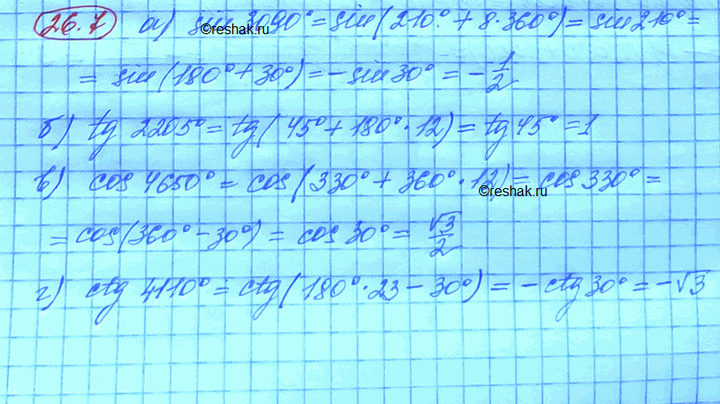 26.7 а) sin 3090° = sin(210° + 8·360°) = sin 210° =
©reshak.ru
= sin(180° + 30°) = -sin 30° = -1/2
б) tg 2205° = tg(45° + 180°·12) = tg 45° = 1
в) cos 4650° = cos(330° + 360°·12) = cos 330° =
©reshak.ru
= cos(360° - 30°) = cos 30° = √3/2
г) ctg 4110° = ctg(180°·23 - 30°) = -ctg 30° = -√3